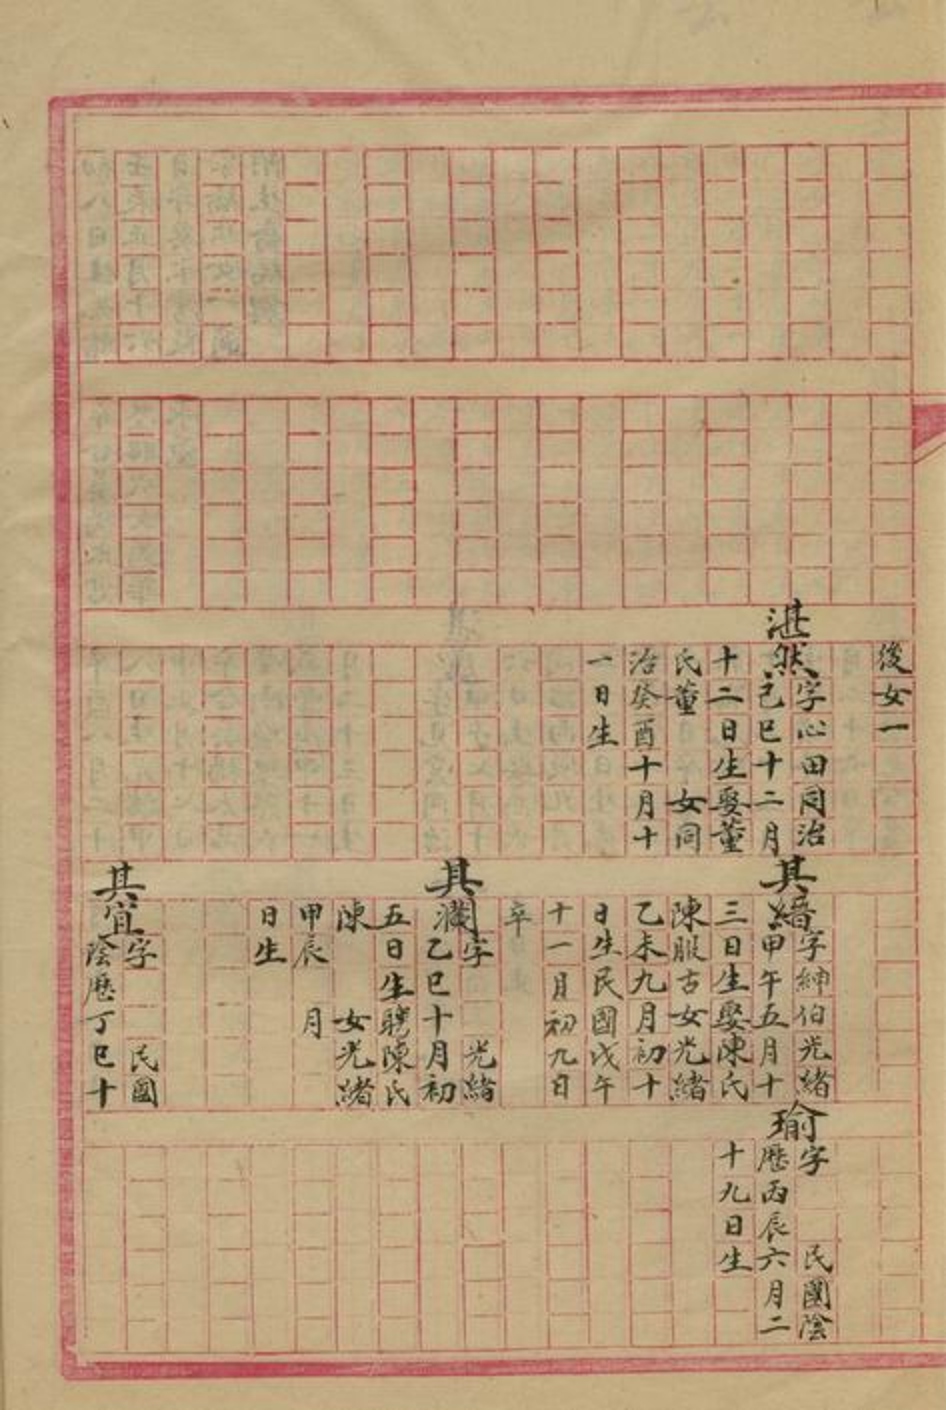 後女一
湛然
字心田同治
己巳十二月
十二日生娶董
氏董 女同
治癸酉十月十
一日生
其縉
字紳伯光緒
甲午五月十
三日生娶陳氏
陳服古女光緒
乙未九月初十
日生民國戊午
十一月初九日
卒
其
字 光緒
乙巳十月初
五日生聘陳氏
陳 女光緒
甲辰 月
日生
其宜
字 民國
陰歷丁巳十
瑜
字 民國陰
歷丙辰六月二
十九日生